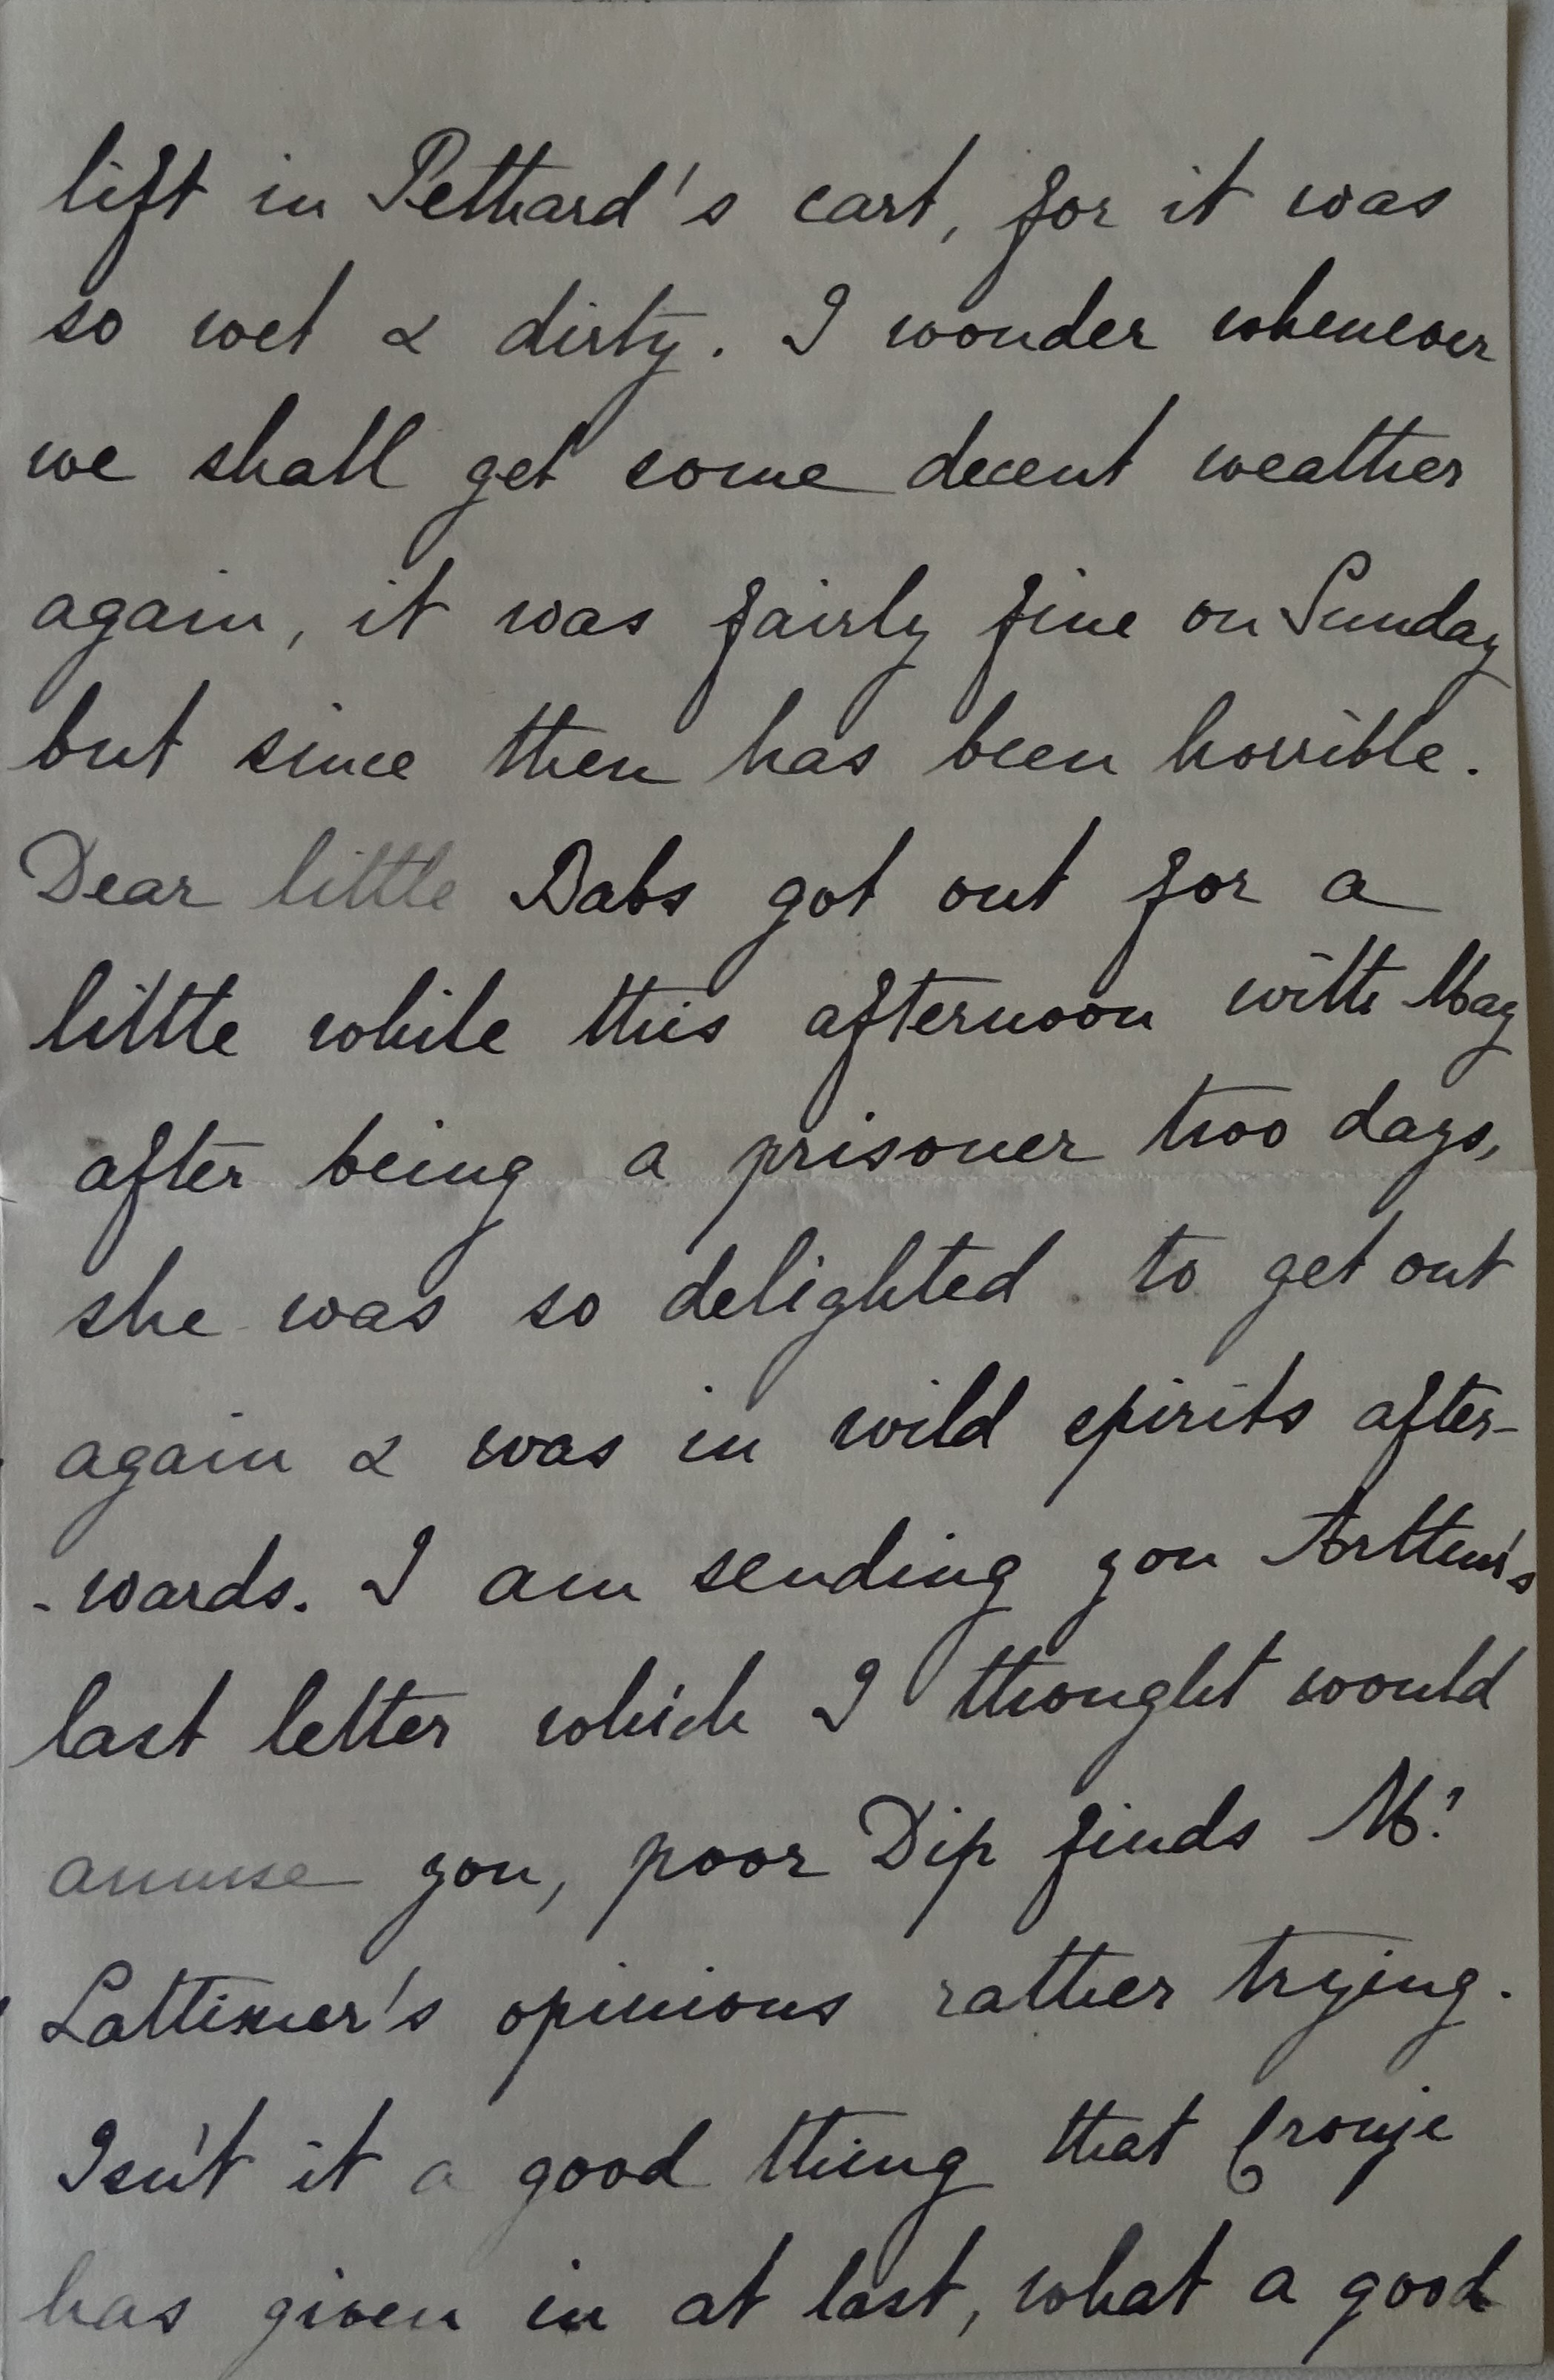 lift in Pethard's cart, for it was
so wet & dirty. I wonder whenever
we shall get some decent weather
again, it was fairly fine on Sunday
but since then has been horrible.
Dear little Babs got out for a
little while this afternoon with May
after being a prisoner two days,
she was so delighted to get out
again & was in wild spirits after-
-wards. I am sending you Arthur's
last letter which I thought would
amuse you, poor Dip finds Mr.
Lattimer's opinions rather trying.
Isn't it a good thing that Cronje
has given in at last, what a good